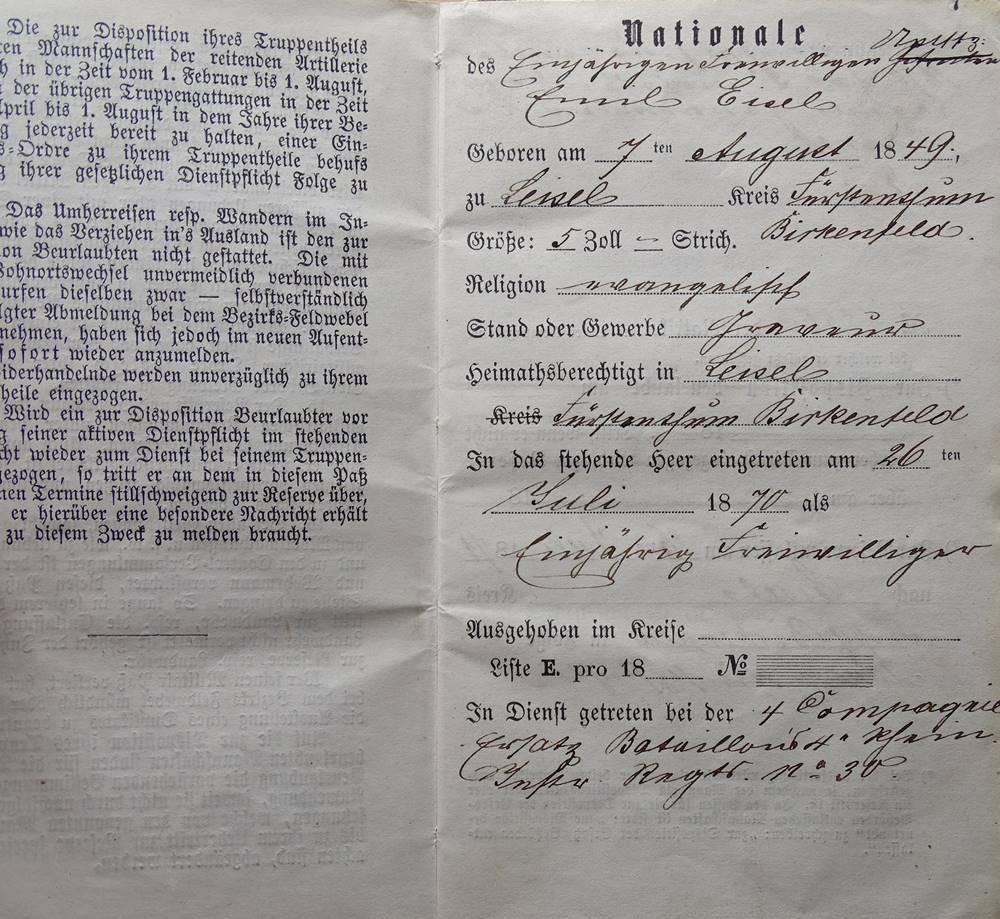 Die zur Disposition ihres Truppentheils
ten Mannschaften der reitenden Artillerie
h in der Zeit vom 1. Februar bis 1. August,
der übrigen Truppengattungen in der Zeit
April bis 1. August in dem Jahre ihrer Be-
g jederzeit bereit zu halten, einer Ein-
s-Ordre zu ihrem Truppentheile behufs
g ihrer gesetzlichen Dienstpflicht Folge zu
Das Umherreisen resp. Wandern im In-
wie das Verziehen in's Ausland ist den zur
on Beurlaubten nicht gestattet. Die mit
Wohnortswechsel unvermeidlich verbundenen
urfen dieselben zwar — selbstverständlich
lgter Abmeldung bei dem Bezirks-Feldwebel
nehmen, haben sich jedoch im neuen Aufent-
sofort wieder anzumelden.
iderhandelnde werden unverzüglich zu ihrem
heile eingezogen.
Wird ein zur Disposition Beurlaubter vor
g seiner aktiven Dienstpflicht im stehenden
cht wieder zum Dienst bei seinem Truppen-
gezogen, so tritt er an dem in diesem Paß
nen Termine stillschweigend zur Reserve über,
er hierüber eine besondere Nachricht erhält
zu diesem Zweck zu melden braucht.
Nationale
des Einjährigen Freiwilligen
Emil Eisel
Geboren am 7 ten August 1849.,
zu Leisel Kreis Fürstenthum
Größe: 5 Zoll – Strich. Birkenfeld.
Religion evangelisch
Stand oder Gewerbe Graveur
Heimathsberechtigt in Leisel
Kreis Fürstenthum Birkenfeld
In das stehende Heer eingetreten am 26 ten
Juli 1870 als
Einjährig Freiwilliger
Ausgehoben im Kreise
Liste E. pro 18 No
In Dienst getreten bei der 4 Compagnie
Ersatz Bataillons 4n Rhein.
Inftr. Regts. No 30.